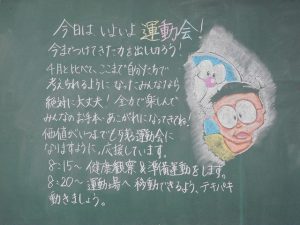 今日は いよいよ 運動会！
今までつけてきた力を出し切ろう！
4月と比べて、ここまで自分たちで
考えられるように なったみんななら
絶対に大丈夫！ 全力で楽しんで
みんなのお手本・あこがれになってきてね！
価値 いつまでも 残る運動会に
なりますように。応援しています。
8:15～ 健康観察&準備運動をします。
8:20～ 運動場へ移動できるよう、テキパキ
動きましょう。